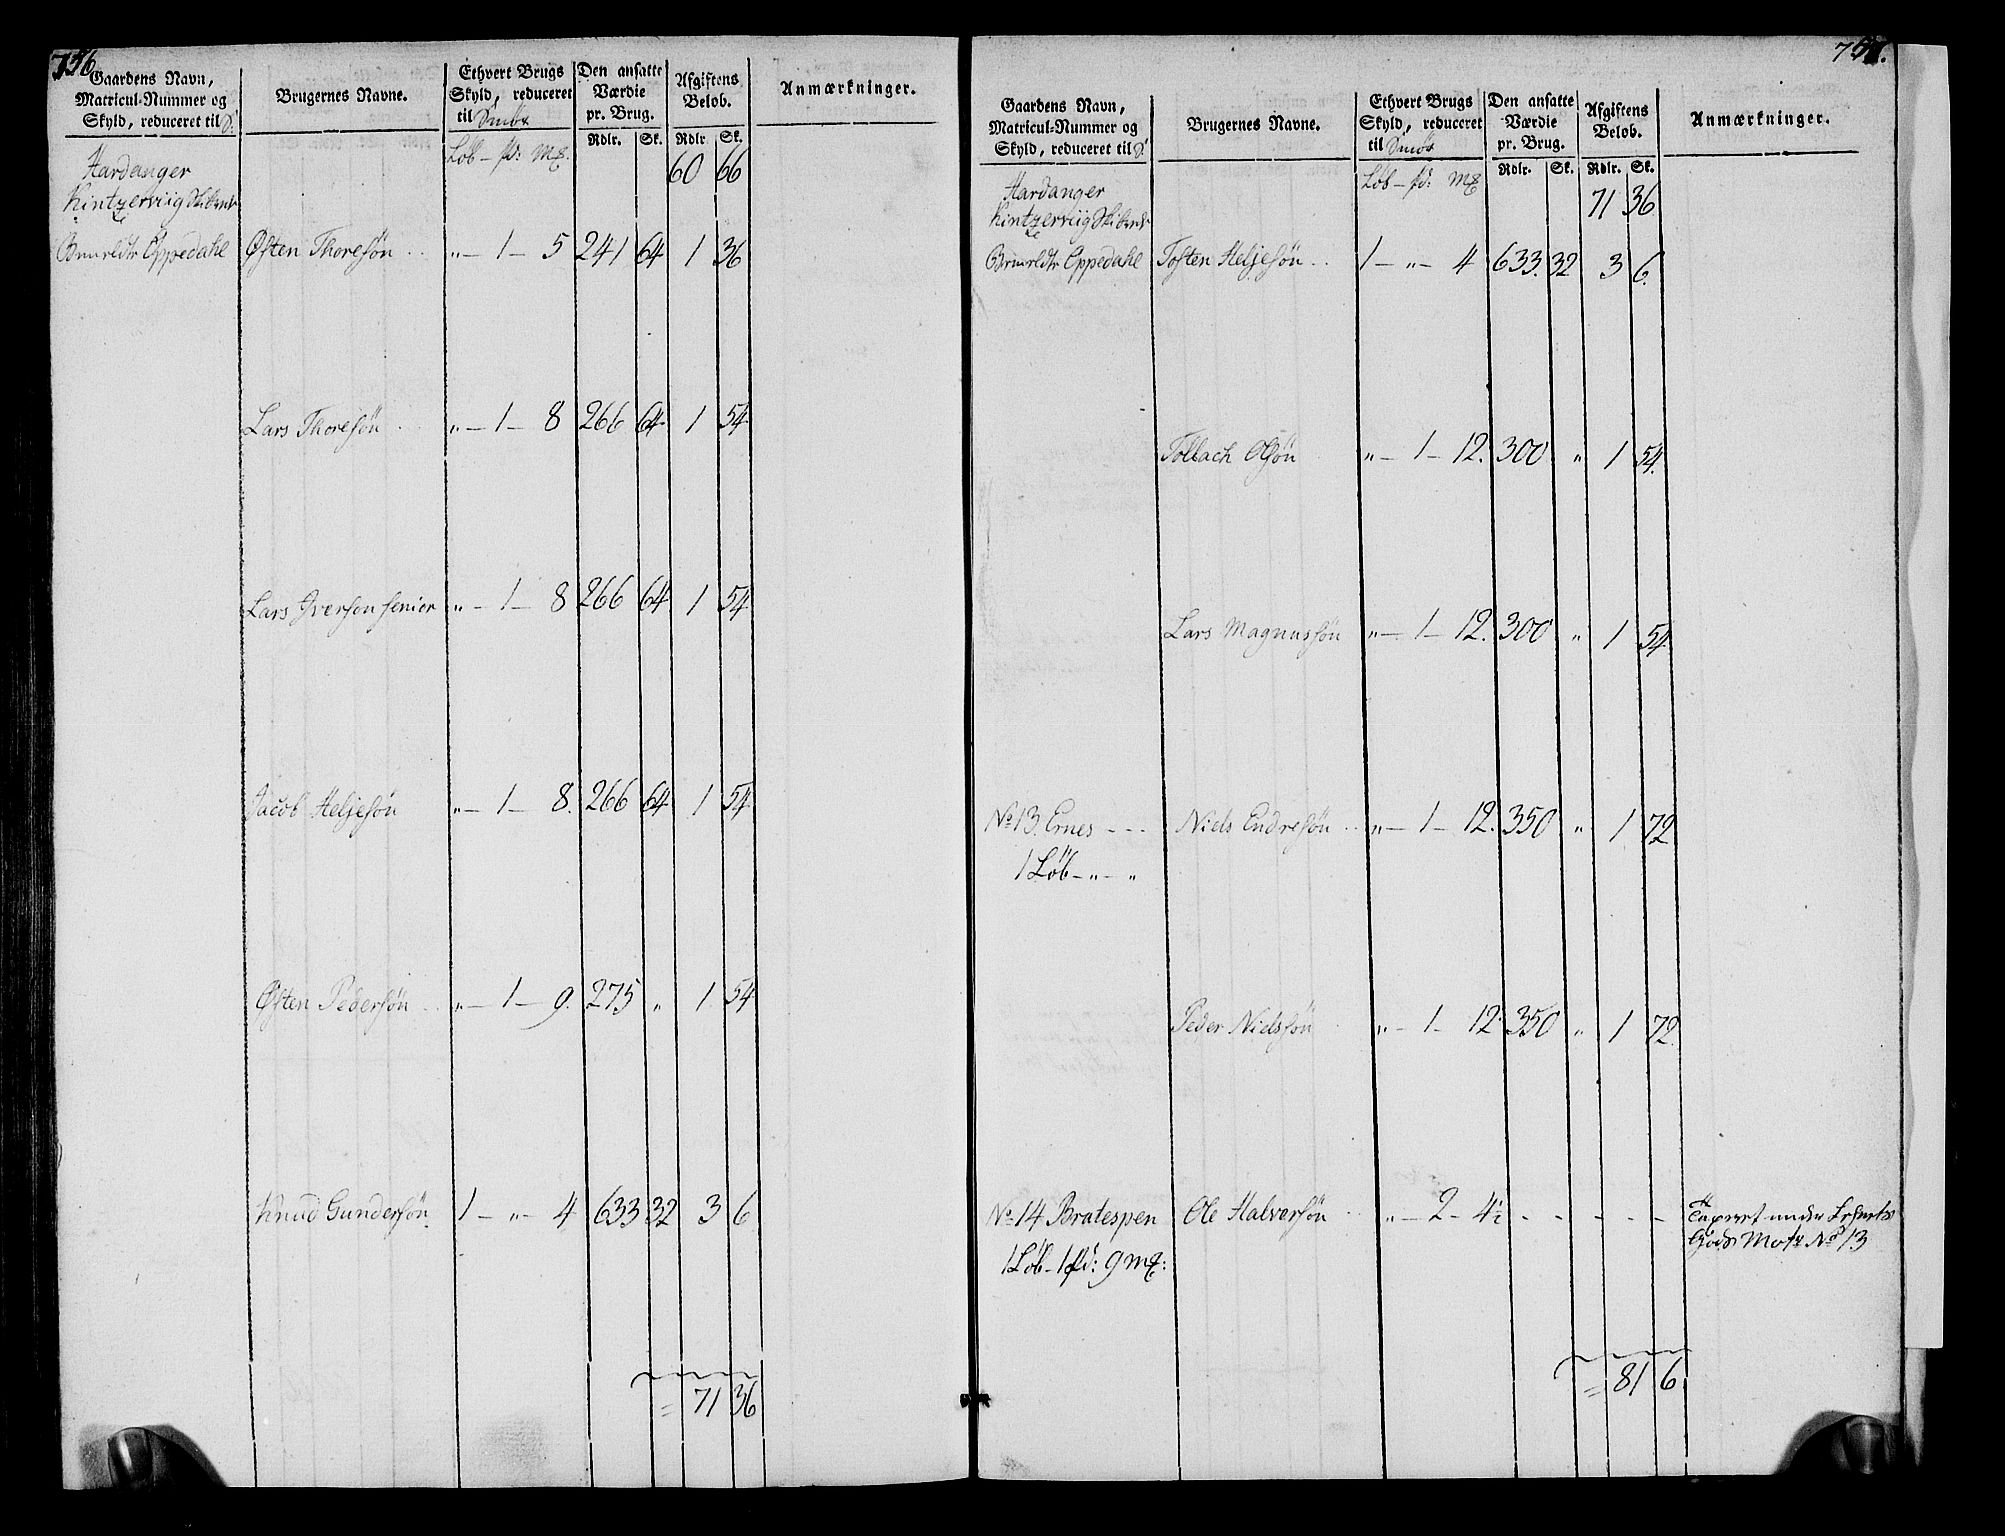 756
Gaardens Navn, Matricul-Nummer og Skyld, reduceret til S:
Brugernes Navne.
Ethvert Brugs Skyld, reduceret til Smör
Den ansatte Værdie pr. Brug.
Afgiftens Beløb.
Anmærkninger.
Rdlr. Sk. Rdlr. Sk.
Løb – pd: m&. 60 66
Hardanger
Kintzerviig Skibrede
Oppedahl Østen Thoresøn . . " – 1 – 5 241 64 1 36
Lars Thoresøn . " – 1 – 8 266 64 1 54
Lars Iverson senior " – 1 – 8 266 64 1 54
Jacob Heljesøn " – 1 – 8. 266 64 1 54
Østen Pedersøn . . " – 1 – 9. 275 " 1 54
Knud Gundersøn. 1 – " – 4 633 32 3 6
= 71 36
757.
Gaardens Navn, Matricul-Nummer og Skyld, reduceret til S:
Brugernes Navne.
Ethvert Brugs Skyld, reduceret til Smör
Den ansatte Værdie pr. Brug.
Afgiftens Beløb.
Anmærkninger.
Rdlr. Sk. Rdlr. Sk.
Løb – pd: m& 71 36
Hardanger
Kintzerviig Skibrede
Oppedahl Tosten Heljesøn . . 1 – " – 4 633. 32 3 6.
Tollach Olsøn " – 1 – 12. 300 " 1 54.
Lars Magnussøn " – 1 – 12. 300 " 1 54
No 13. Ernes - - - Niels Endresøn . . " – 1 – 12. 350 " 1 72
1 Løb – " – "
Peder Nielssøn . " – 1 – 12. 350 " 1 72.
No 14 Bratespen Ole Halversøn . . " – 2 – 4½ - - - - - Taxeret under
1 Løb – 1 pd: 9 m&: Gods No 13
= 81 6